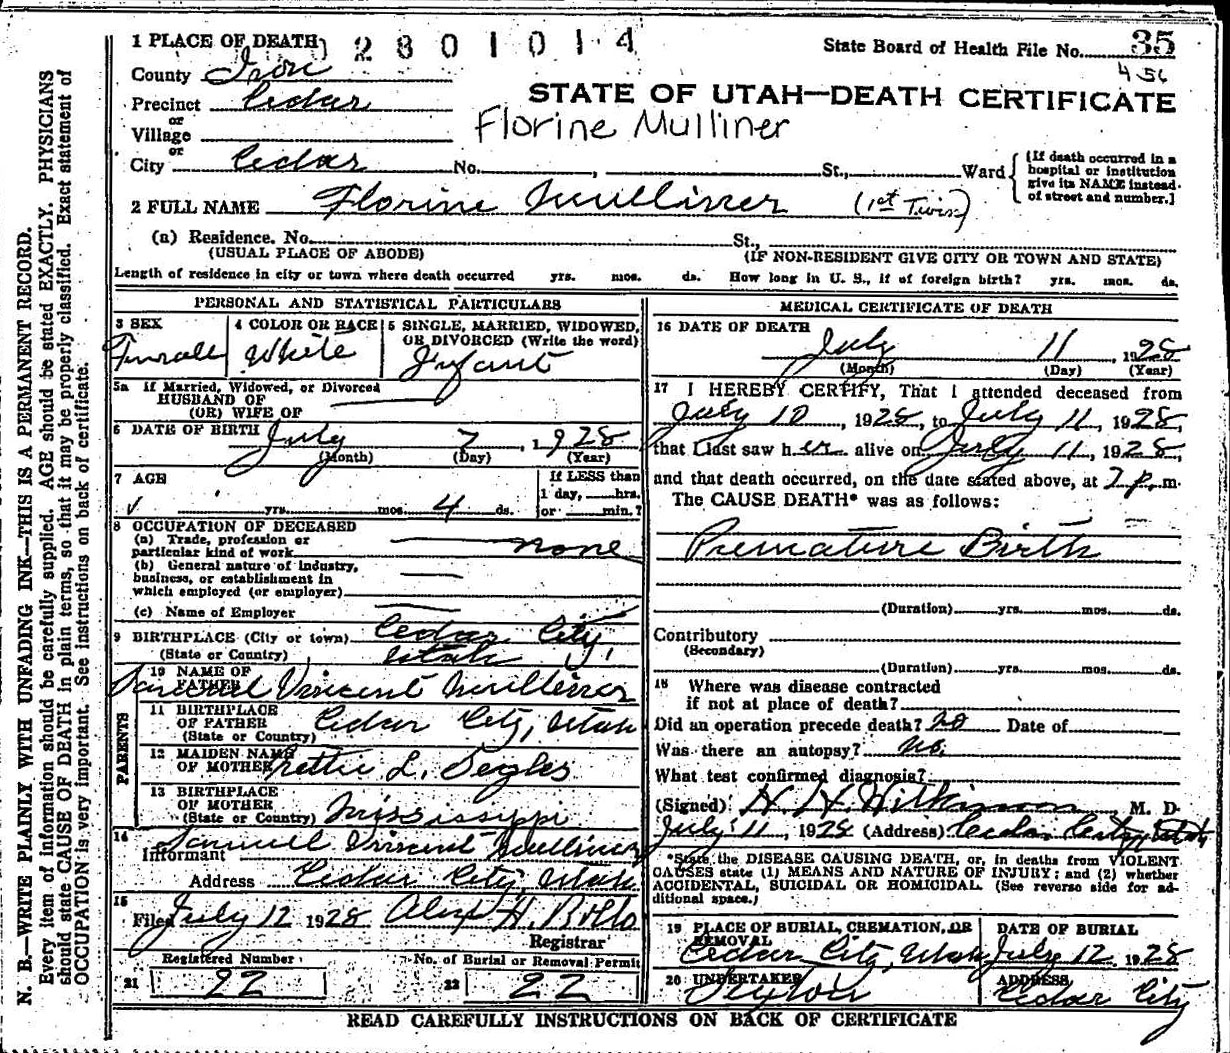 1 PLACE OF DEATH 2801014 State Board of Health File No. 35
County Iron 456
STATE OF UTAH—DEATH CERTIFICATE
Precinct Cedar
or
Village
Florine Mulliner
or
City Cedar No. , St., Ward
(If death occurred in a
hospital or institution
give its NAME instead
of street and number.]
2 FULL NAME Florine Mulliner (1st Twin)
(a) Residence. No. St.,
(USUAL PLACE OF ABODE) (IF NON-RESIDENT GIVE CITY OR TOWN AND STATE)
Length of residence in city or town where death occurred yrs. mos. ds. How long in U. S., if of foreign birth? yrs. mos. ds.
PERSONAL AND STATISTICAL PARTICULARS
3 SEX 4 COLOR OR RACE 5 SINGLE, MARRIED, WIDOWED,
OR DIVORCED (Write the word)
Female White Infant
5a If Married, Widowed, or Divorced
HUSBAND OF
(OR) WIFE OF
6 DATE OF BIRTH July 7, 1928
(Month) (Day) (Year)
7 AGE If LESS than
1 day, hrs.
yrs. mos. 4 ds. or min.?
8 OCCUPATION OF DECEASED
(a) Trade, profession or
particular kind of work none
(b) General nature of industry,
business, or establishment in
which employed (or employer)
(c) Name of Employer
9 BIRTHPLACE (City or town) Cedar City,
(State or Country) Utah
PARENTS
10 NAME OF
FATHER Samuel Vincent Mulliner
11 BIRTHPLACE
OF FATHER Cedar City, Utah
(State or Country)
12 MAIDEN NAME
OF MOTHER Nettie L. Segles
13 BIRTHPLACE
OF MOTHER
(State or Country) Mississippi
14
Informant Samuel Vincent Mulliner
Address Cedar City, Utah
15
Filed July 12 1928 H.
Registrar
Registered Number No. of Burial or Removal Permit
21 22 22 22
MEDICAL CERTIFICATE OF DEATH
16 DATE OF DEATH
July 11, 1928
(Month) (Day) (Year)
17 I HEREBY CERTIFY, That I attended deceased from
July 10, 1928, to July 11, 1928,
that I last saw her alive on July 11, 1928,
and that death occurred, on the date stated above, at 7 p.m.
The CAUSE DEATH* was as follows:
Premature Birth
(Duration) yrs. mos. ds.
Contributory
(Secondary)
(Duration) yrs. mos. ds.
18 Where was disease contracted
if not at place of death?
Did an operation precede death? no Date of
Was there an autopsy? No.
What test confirmed diagnosis?
(Signed) H H Wilkinson M. D.
July 11, 1928 (Address) Cedar City, Utah
*State the DISEASE CAUSING DEATH, or, in deaths from VIOLENT
CAUSES state (1) MEANS AND NATURE OF INJURY; and (2) whether
ACCIDENTAL, SUICIDAL OR HOMICIDAL. (See reverse side for ad-
ditional space.)
19 PLACE OF BURIAL, CREMATION, OR
REMOVAL DATE OF BURIAL
Cedar City, Utah July 12 1928
20 UNDERTAKER ADDRESS
Cedar City
READ CAREFULLY INSTRUCTIONS ON BACK OF CERTIFICATE
N. B.—WRITE PLAINLY WITH UNFADING INK—THIS IS A PERMANENT RECORD.
Every item of information should be carefully supplied. AGE should be stated EXACTLY. PHYSICIANS
should state CAUSE OF DEATH in plain terms, so that it may be properly classified. Exact statement of
OCCUPATION is very important. See instructions on back of certificate.